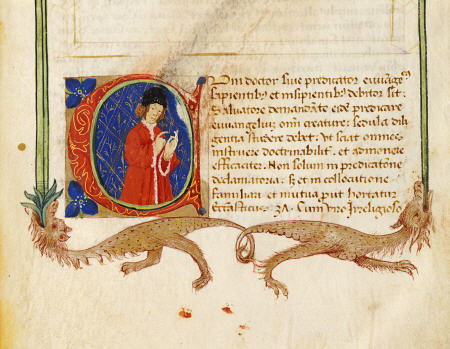 CVm doctor siue predicator euuãge
sapientibꝫ et insipientibꝫ debitor sit.
Saluatore demandãte eidẽ predicare
euuangeliuꝫ om̃i creature: sedula dili
gentia studere debet. Vt sciat omnes
instruere doctrinabilit' et admonere
efficaciter. Non solum in predicatõne
declamatoria: sꝫ et in collocutione
familiari et mutua prout hortatur
Cum viro irreligioso